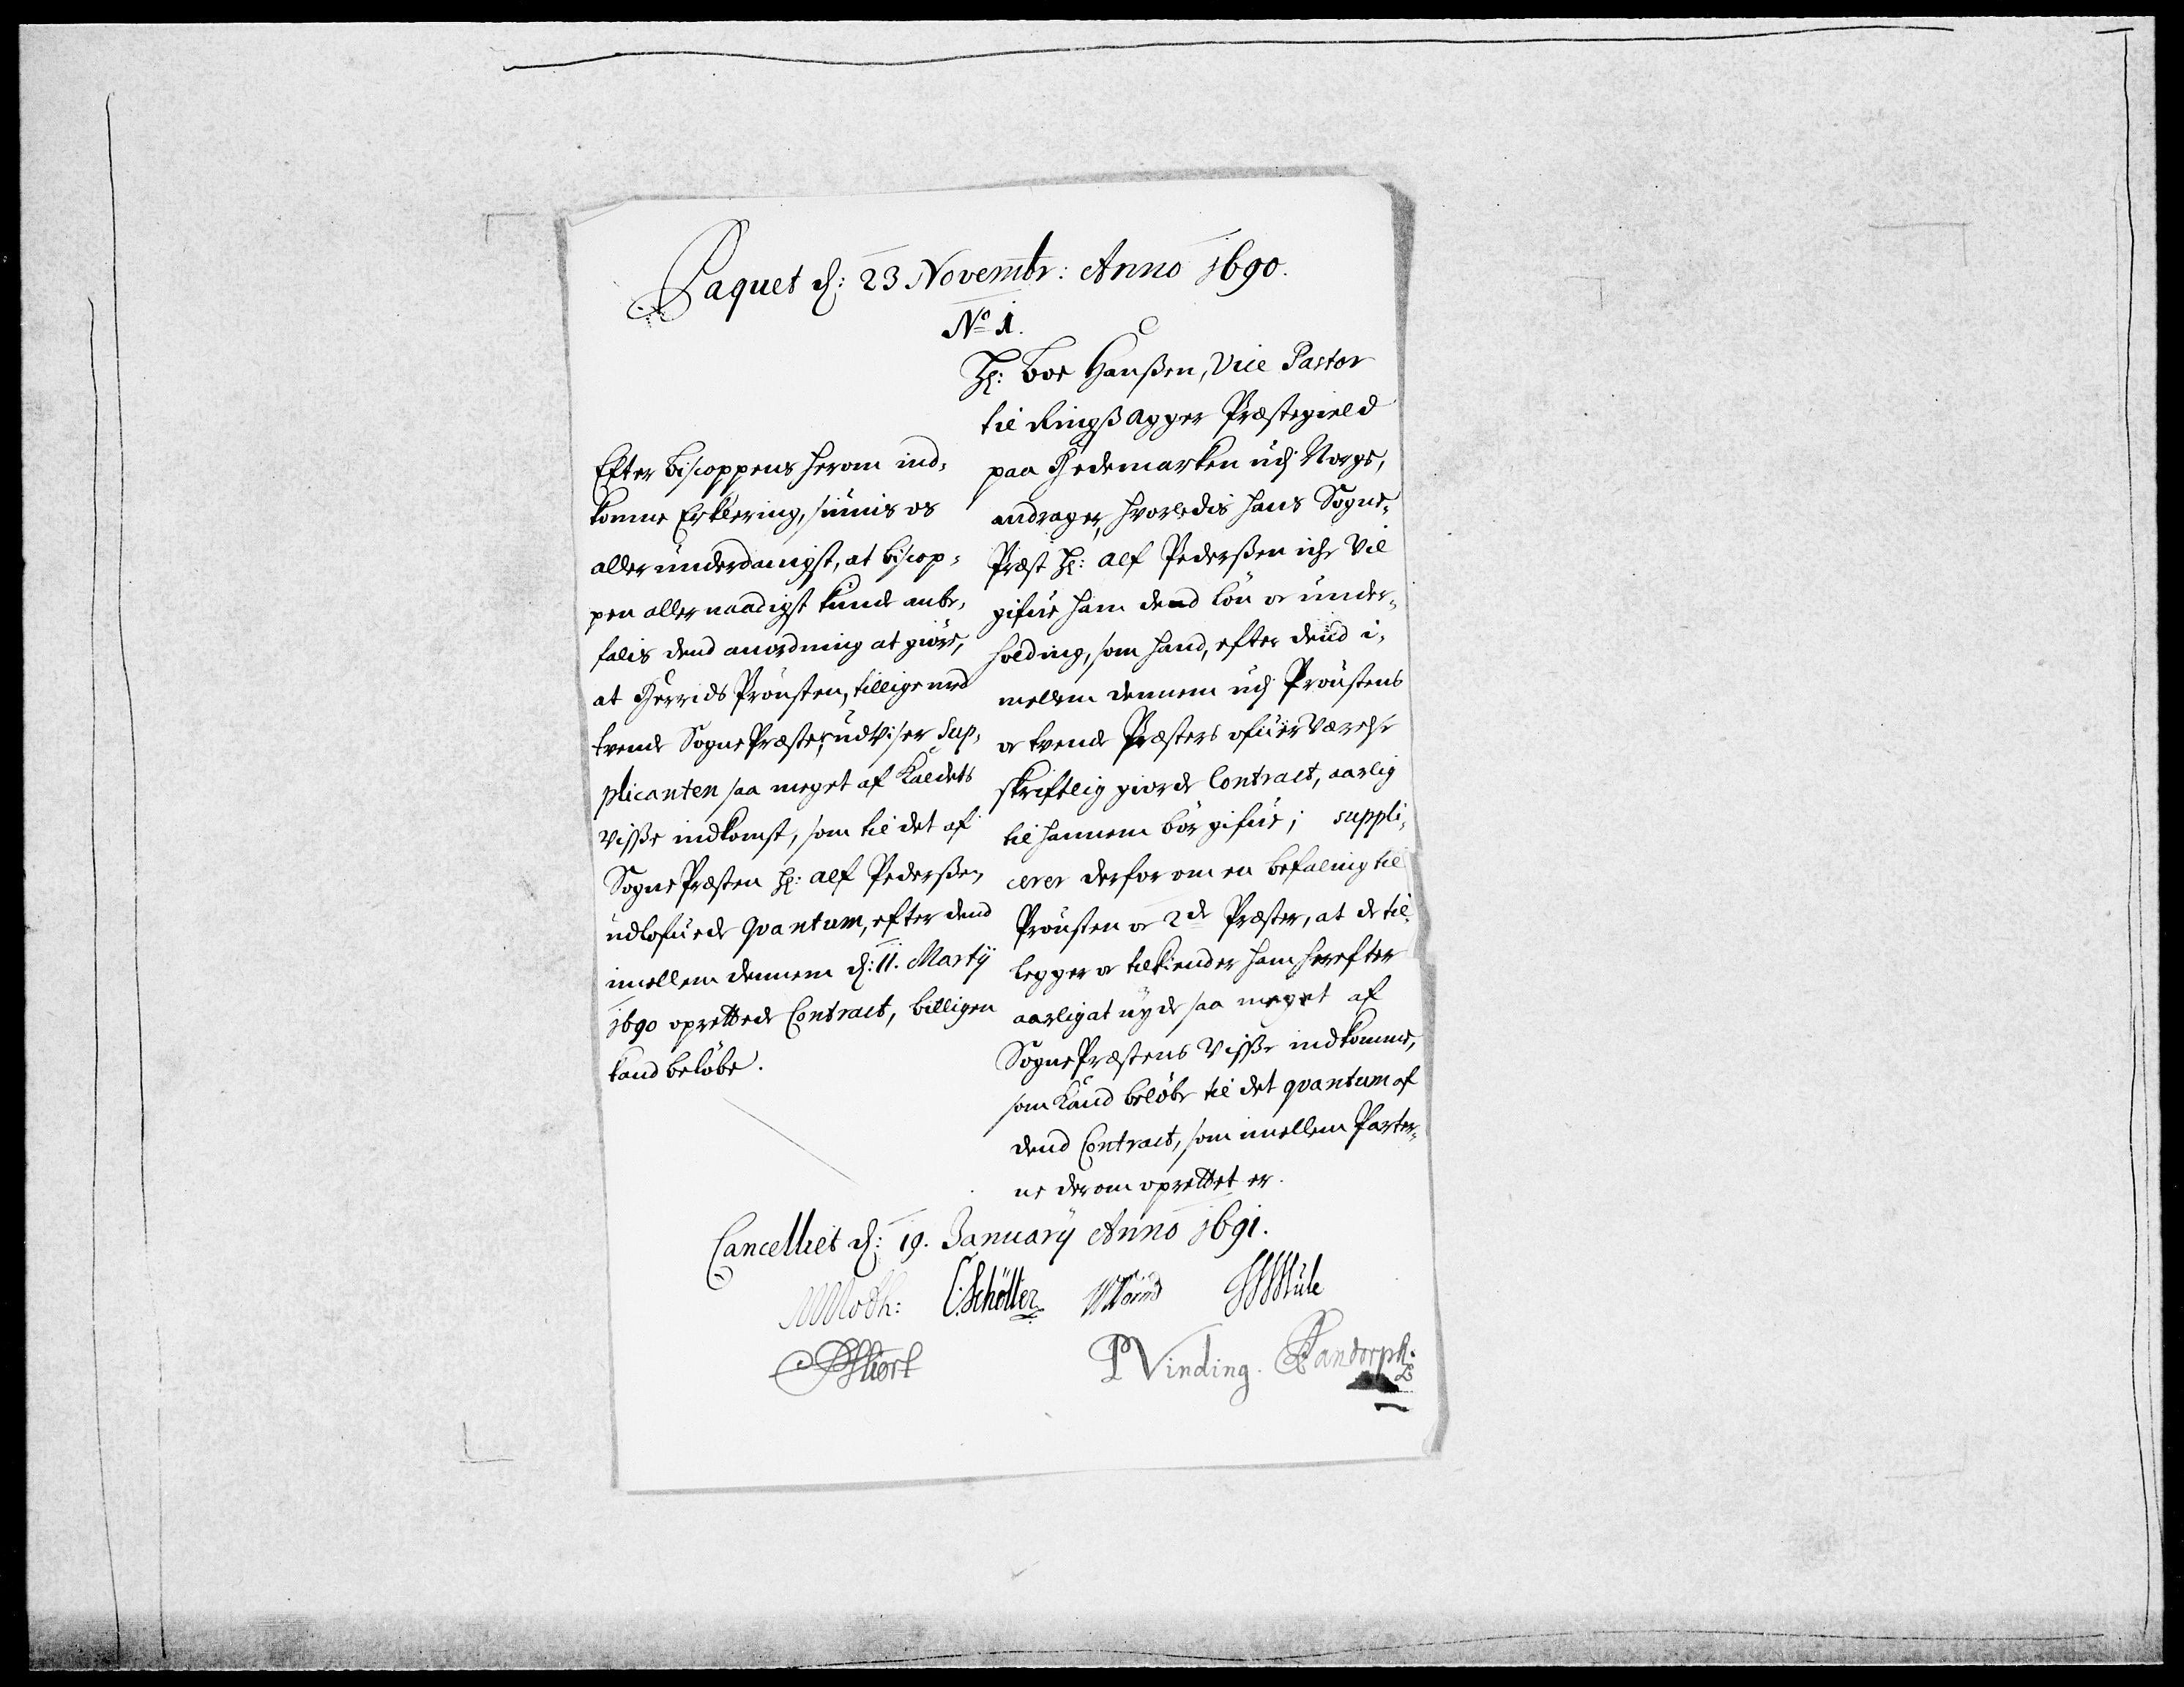 Paquet d: 23 Novembr: Anno 1690.
No 1.
Hr: Boe Hanßen, Vice Pastor
til Ringßagger Præstegield
paa Hedemarken udj Norge,
andrager, hvorledis hans Sogne-
Præst Hr: Alf Pederßen iche Vil
gifue ham dend lön oc under-
holding, som hand, efter dend i-
mellem dennem udj Proustens
oc tvende Præsters ofuerværelse
skriftlig giorde Contract, aarlig
til hannem bör gifue; suppli-
cerer derfor om en befaling til
Prousten oc 2de Præster, at de til-
legger oc tilkiender ham herefter
aarlig at nyde saa meget af
SognePræstens Visße indkomme,
som Kand beløbe til det qvantum af
dend Contract, som imellem Parter-
ne derom oprettet er.
Efter Biscoppens herom ind-
komne Erklering, siunis os
allerunderdanigst, at Biscop-
pen allernaadigst kunde anbe-
falis dend anordning at giöre,
at Herrids Prousten, tillige med
tvende SognePræster, udviser Sup-
plicanten saa meget af Kaldets
visße indkomst, som til det af
SognePræsten Hr: Alf Pederßen
udlofuede qvantum, efter dend
imellem dennem d: 11. Martij
1690 oprettede Contract, billigen
kand beløbe.
Cancelliet d: 19. Januarij Anno 1691.
MMoth: C:Schöller WWorm HMule
PVinding. Randorph.